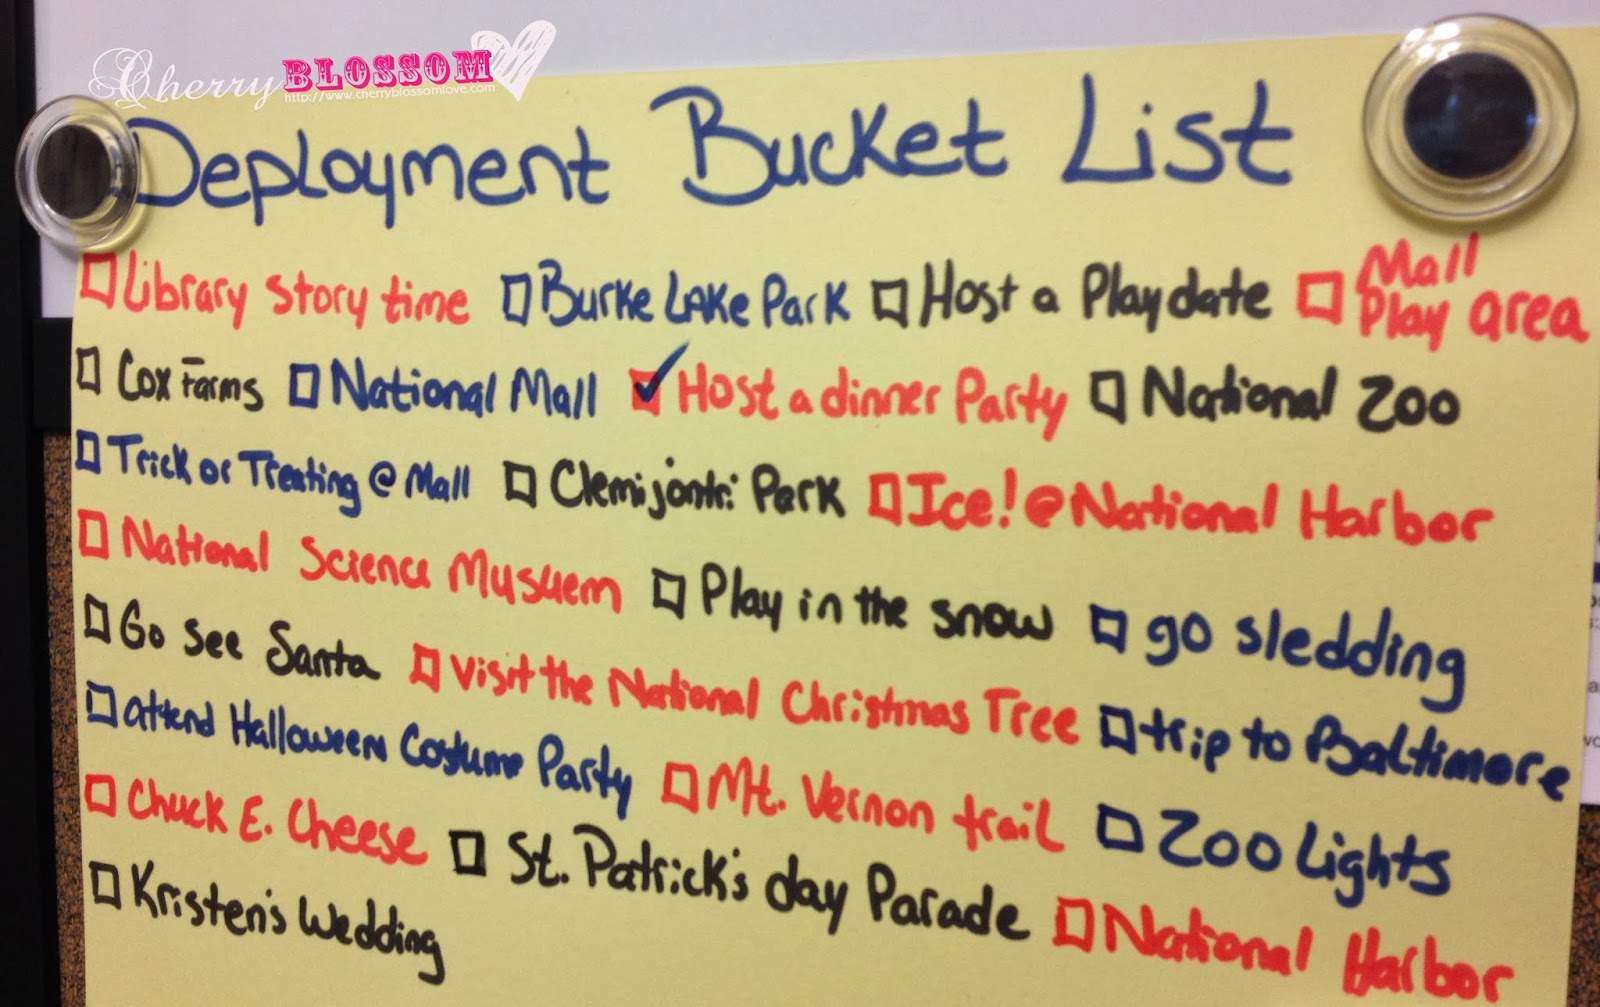 Cherry BLOSSOM
http://www.cherryblossomlove.com
Deployment Bucket List
Library Story time Burke Lake Park Host a Playdate Mall Play area
Cox Farms National Mall Host a dinner Party National Zoo
Trick or Treating @ Mall Clemijontri Park Ice! @ National Harbor
National Science Musuem Play in the snow go sledding
Go See Santa Visit the National Christmas Tree trip to Baltimore
attend Halloween Costume Party Mt. Vernon trail Zoo Lights
Chuck E. Cheese St. Patrick's day Parade National Harbor
Kristen's Wedding